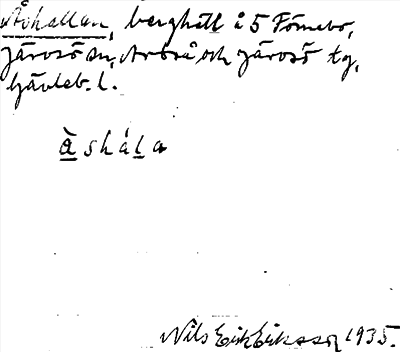 Åshallan, berghäll å 5 Förnebo,
Järvsö sn, Arbrå och Järvsö tg,
Gävleb. l.
àshála
Nils Erik Eriksson 1935.